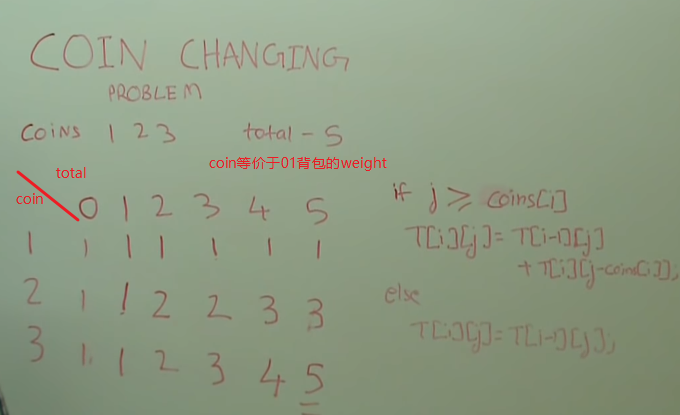 COIN CHANGING
PROBLEM
COINS 1 2 3 total - 5
coin等价于01背包的weight
total
coin
0 1 2 3 4 5
1 1 1 1 1 1 1
2 1 1 2 2 3 3
3 1 1 2 3 4 5
if j ≥ coins[i]
T[i][j] = T[i-1][j]
+ T[i][j-coins[i]];
else
T[i][j] = T[i-1][j];